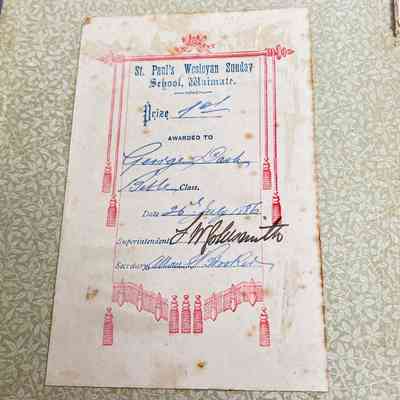 St. Paul's Wesleyan Sunday
School, Waimate.
Prize 1st
AWARDED TO
George Dash
Bible Class.
Date 26th July 1886
Superintendent
Secretary